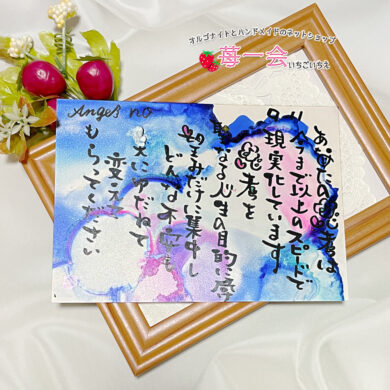 オルゴナイトとハンドメイドのネットショップ
苺一会
いちごいちえ
Angel no
あなたの思考は
今まで以上のスピードで
現実化しています
思考を
聖なる人生の目的に
望みだけに集中し
どんな不安も
天にゆだねて
変えて
もらってください